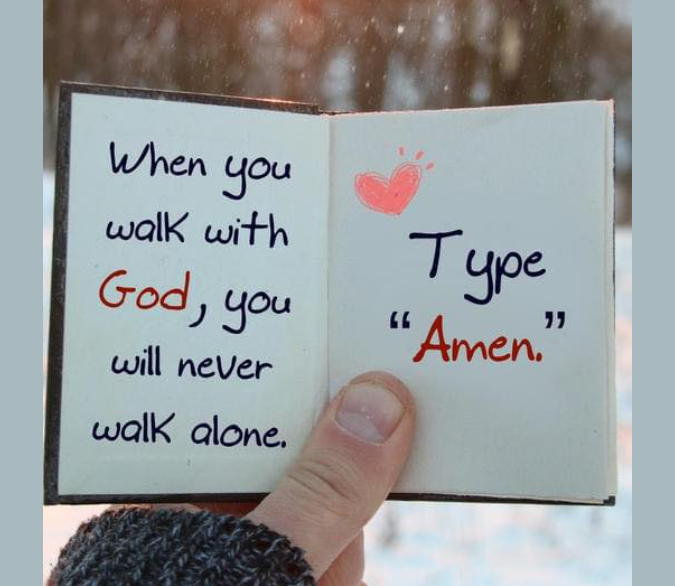 When you
walk with
God, you
will never
walk alone.
Type
“Amen.”